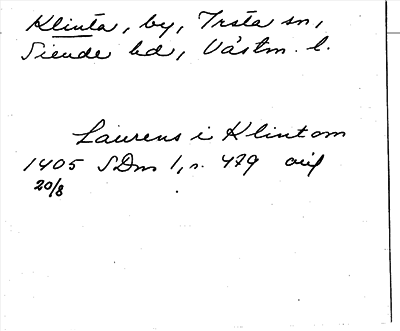 Klinta, by, Irsta sn,
Siende hd, Västm. l.
Laurens i Klintom
1405 SDns 1, s. 479 avs
20/8